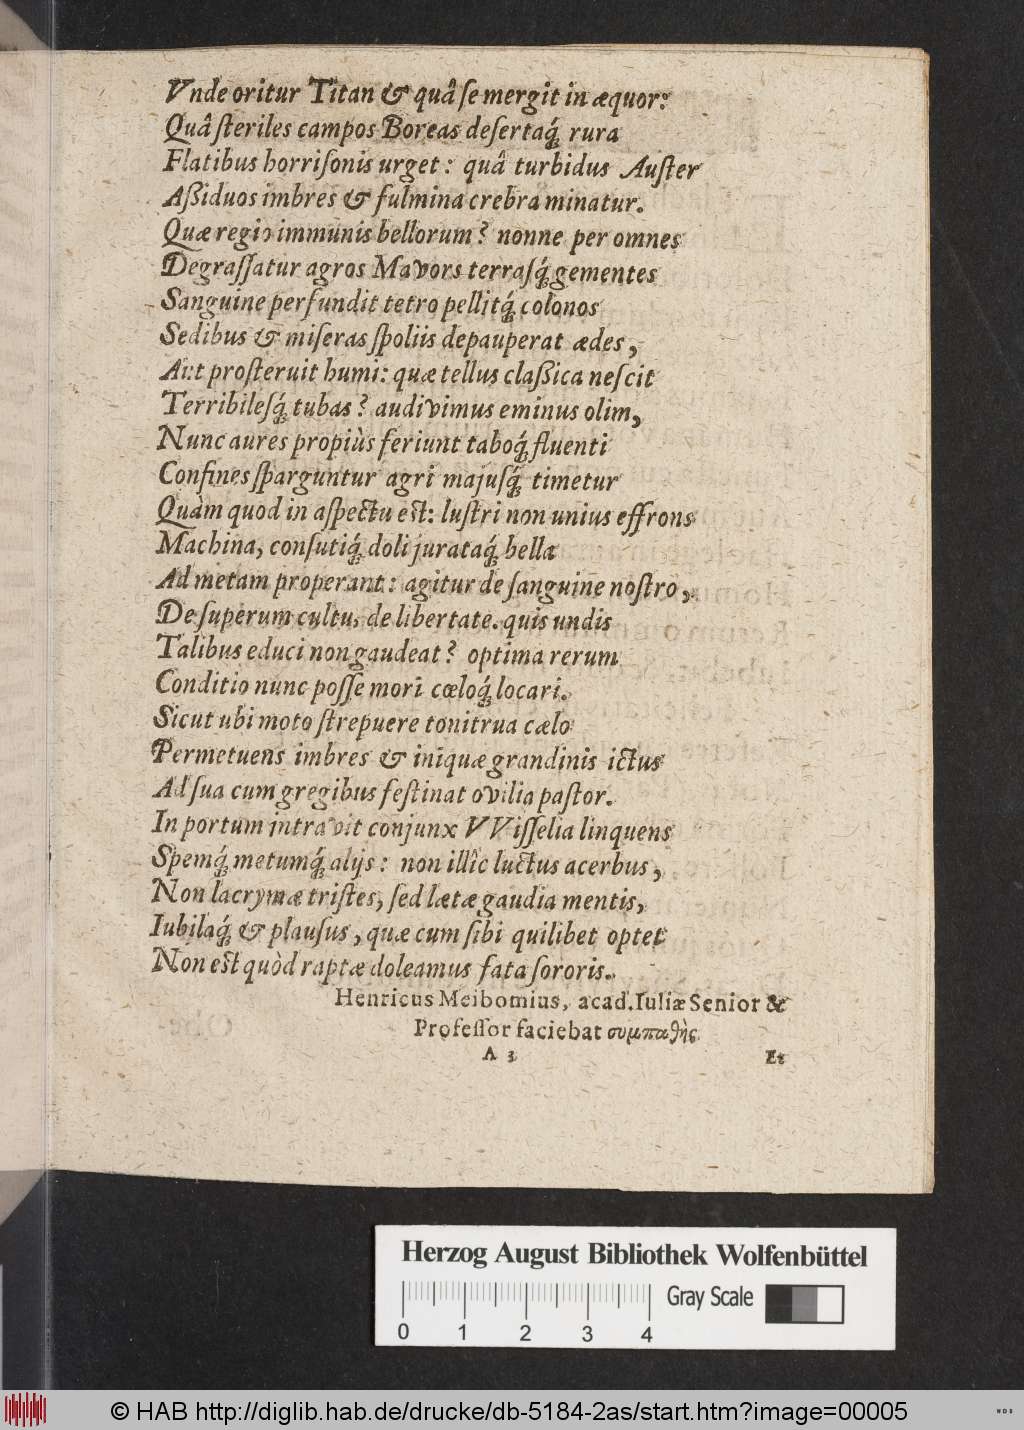 Vnde oritur Titan & quâ ſe mergit in æquor:
Quâ ſteriles campos Boreas deſertaq́; rura
Flatibus horriſonis urget: quâ turbidus Auſter
Aßiduos imbres & fulmina crebra minatur.
Quæ regio immunis bellorum? nonne per omnes
Degraſſatur agros Mavors terraſq́; gementes
Sanguine perfundit tetro pellitq́; colonos
Sedibus & miſeras ſpoliis depauperat ædes,
Aut proſteruit humi: quæ tellus claßica neſcit
Terribileſq́; tubas? audivimus eminus olim,
Nunc aures propiùs feriunt taboq́; fluenti
Confines ſparguntur agri majuſq́; timetur
Quàm quod in aſpectu est: luſtri non unius effrons
Machina, conſutiq́; doli jurataq́; bella
Ad metam properant: agitur de ſanguine noſtro,
De ſuperum cultu, de libertate. quis undis
Talibus educi non gaudeat? optima rerum
Conditio nunc poſſe mori cœloq́; locari.
Sicut ubi moto ſtrepuere tonitrua cælo
Permetuens imbres & iniquæ grandinis ictus
Ad ſua cum gregibus feſtinat ovilia paſtor.
In portum intravit conjunx VViſſelia linquens
Spemq́; metumq́; alijs: non illîc luctus acerbus,
Non lacrymæ triſtes, ſed lætæ gaudia mentis,
Iubilaq́; & plauſus, quæ cum ſibi quilibet optet
Non est quòd raptæ doleamus fata ſororis.
Henricus Meibomius, acad. Iuliæ Senior &
Profeſſor faciebat συμπαθὴς.
A 3
Et
Herzog August Bibliothek Wolfenbüttel
Gray Scale
0 1 2 3 4
© HAB http://diglib.hab.de/drucke/db-5184-2as/start.htm?image=00005